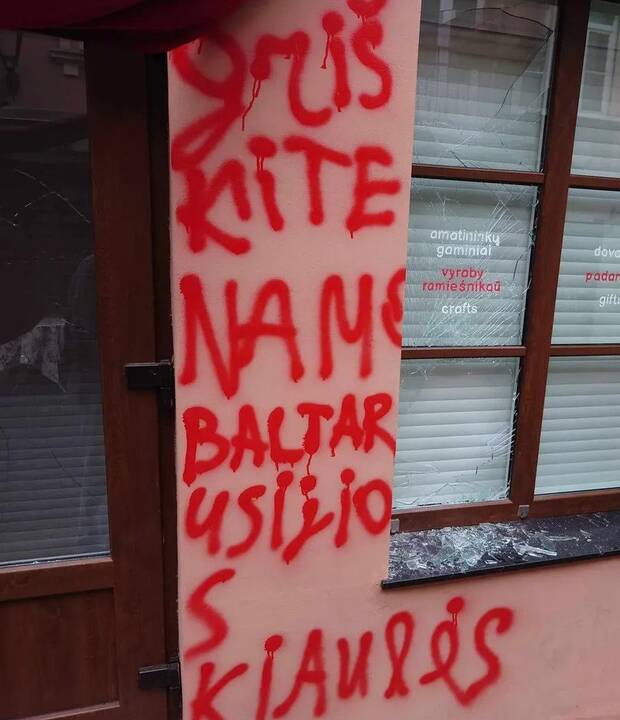 griš
KITE
NAMO
BALTAR
USIJIO
S
KIAULĖS
amatininkų
gaminiai
vyroby
ramieśnikaŭ
crafts
dova
padar
gifts